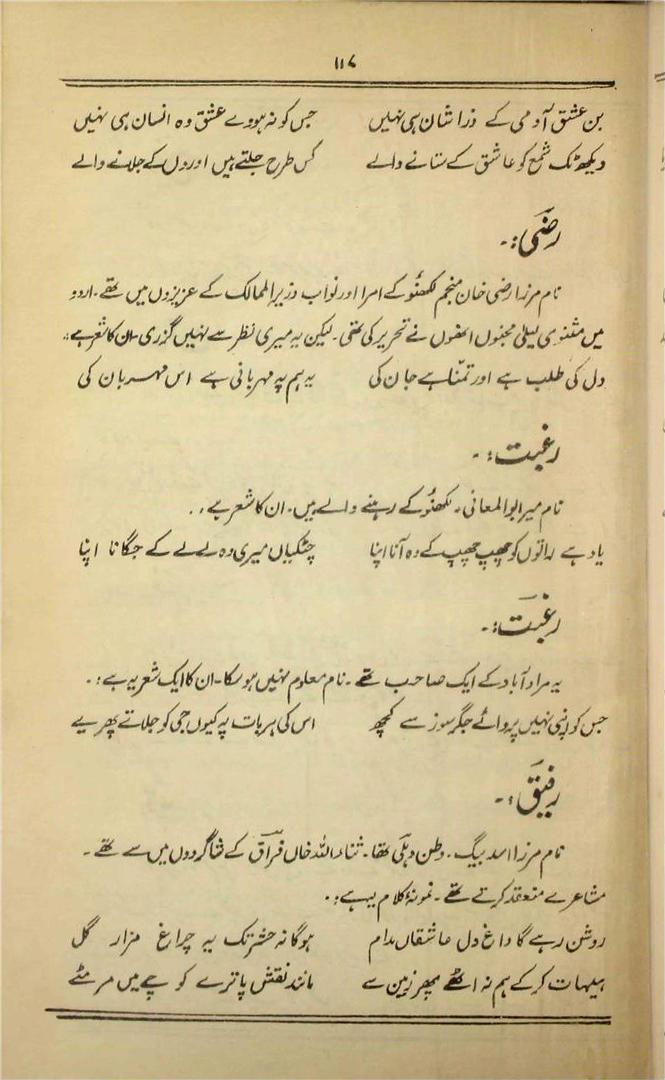 ۱۱۷
بن عشق آدمی کے ذرا شان ہی نہیں جس کو نہ ہووے عشق وہ انسان ہی نہیں
دیکھ ٹک شمع کو عاشق کے ستانے والے کس طرح جلتے ہیں اوروں کے جلانے والے
رضی:۔
نام مرزا رضی خان منجم لکھنؤ کے امرا اور نواب وزیر الممالک کے عزیزوں میں تھے۔ اردو
میں مثنوی لیلیٰ مجنوں انھوں نے تحریر کی تھی۔ لیکن یہ میری نظر سے نہیں گزری۔ ان کا شعر ہے:
دل کی طلب ہے اور تمنّا ہے جان کی یہ ہم پہ مہربانی ہے اس مہربان کی
رغبت:۔
نام میر ابو المعانی۔ لکھنؤ کے رہنے والے ہیں۔ ان کا شعر ہے:۔
یاد ہے راتوں کو چھپ چھپ کے وہ آنا اپنا چٹکیاں میری وہ لے لے کے جگانا اپنا
رغبت:۔
یہ مراد آباد کے ایک صاحب تھے۔ نام معلوم نہیں ہو سکا۔ ان کا ایک شعر یہ ہے:۔
جس کو اپنی نہیں پروائے جگر سوز سے کچھ اس کی ہر بات پہ کیوں جی کو جلاتے پھریے
رفیق:۔
نام مرزا اسد بیگ۔ وطن دہلی تھا۔ ثناء اللہ خاں فراق کے شاگردوں میں سے تھے۔
مشاعرے منعقد کرتے تھے۔ نمونۂ کلام یہ ہے:۔
روشن رہے گا داغِ دل عاشقاں مدام ہوگا نہ حشر تک یہ چراغ مزار گل
ہیہات کر کے ہم نہ اٹھے پھر زمین سے مانند نقش پا ترے کوچے میں مر مٹے